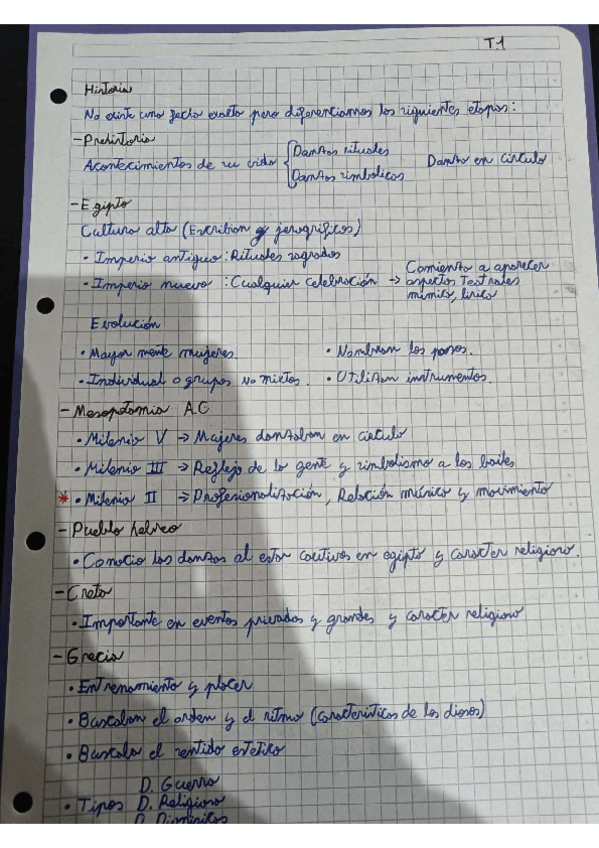 T.1
Historia
No existe una fecha exacta pero diferenciamos los siguientes etapas:
- Prehistoria
Acontecimientos de su vida { Danzas rituales Danza en circulo
Danzas simbolicas
- Egipto
Cultura alta (Escribian y jerogrificos)
• Imperio antiguo: Rituales sagrados
• Imperio nuevo: Cualquier celebración → Comienza a aparecer aspectos teatrales
mimico, lirico
Evolución
• Mayor mente mujeres. • Nombran los pasos.
• Individual o grupos no mixtos. • Utilizan instrumentos.
- Mesoptomia A.C
• Milenio V → Mujeres danzaban en circulo
• Milenio III → Reflejo de la gente y simbolismo a los bailes
* • Milenio II → Profesionalización, Relación música y movimiento
- Pueblo hebreo
• Conocio las danzas al estar cautivos en egipto y caracter religioso.
- Creta
• Importante en eventos privados y grandes y caracter religioso
- Grecia
• Entrenamiento y placer
• Buscaban el orden y el ritmo (caracteristicos de los dioses)
• Buscaba el sentido estetico
D. Guerra
• Tipos D. Religioso